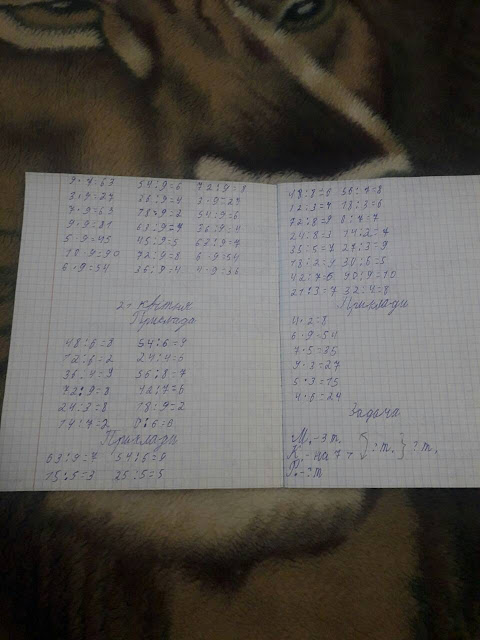 9·7=63 54:9=6 72:9=8
3·9=27 36:9=4 3·9=27
7·9=63 54:9=6
9·9=81 63:9=7 36:9=4
5·9=45 45:9=5 63:9=7
10·9=90 72:9=8 6·9=54
6·9=54 36:9=4 4·9=36
21 квітня
48:6=8 54:6=9
12:6=2 24:4=6
36:4=9 56:8=7
72:9=8 42:7=6
24:3=8 18:9=2
14:7=2 0:6=0
Приклади
63:9=7 54:6=9
15:5=3 25:5=5
48:8=6 56:7=8
18:3=6
72:8=9 0:7=7
24:8=3 14:2=7
27:3=9
18:2=9 30:6=5
42:7=6 90:9=10
21:3=7 32:4=8
Приклади
4·2=8
6·9=54
7·5=35
9·3=27
5·3=15
4·6=24
Задача
М.-3 т.
К.-на 7 т
Р.-? т